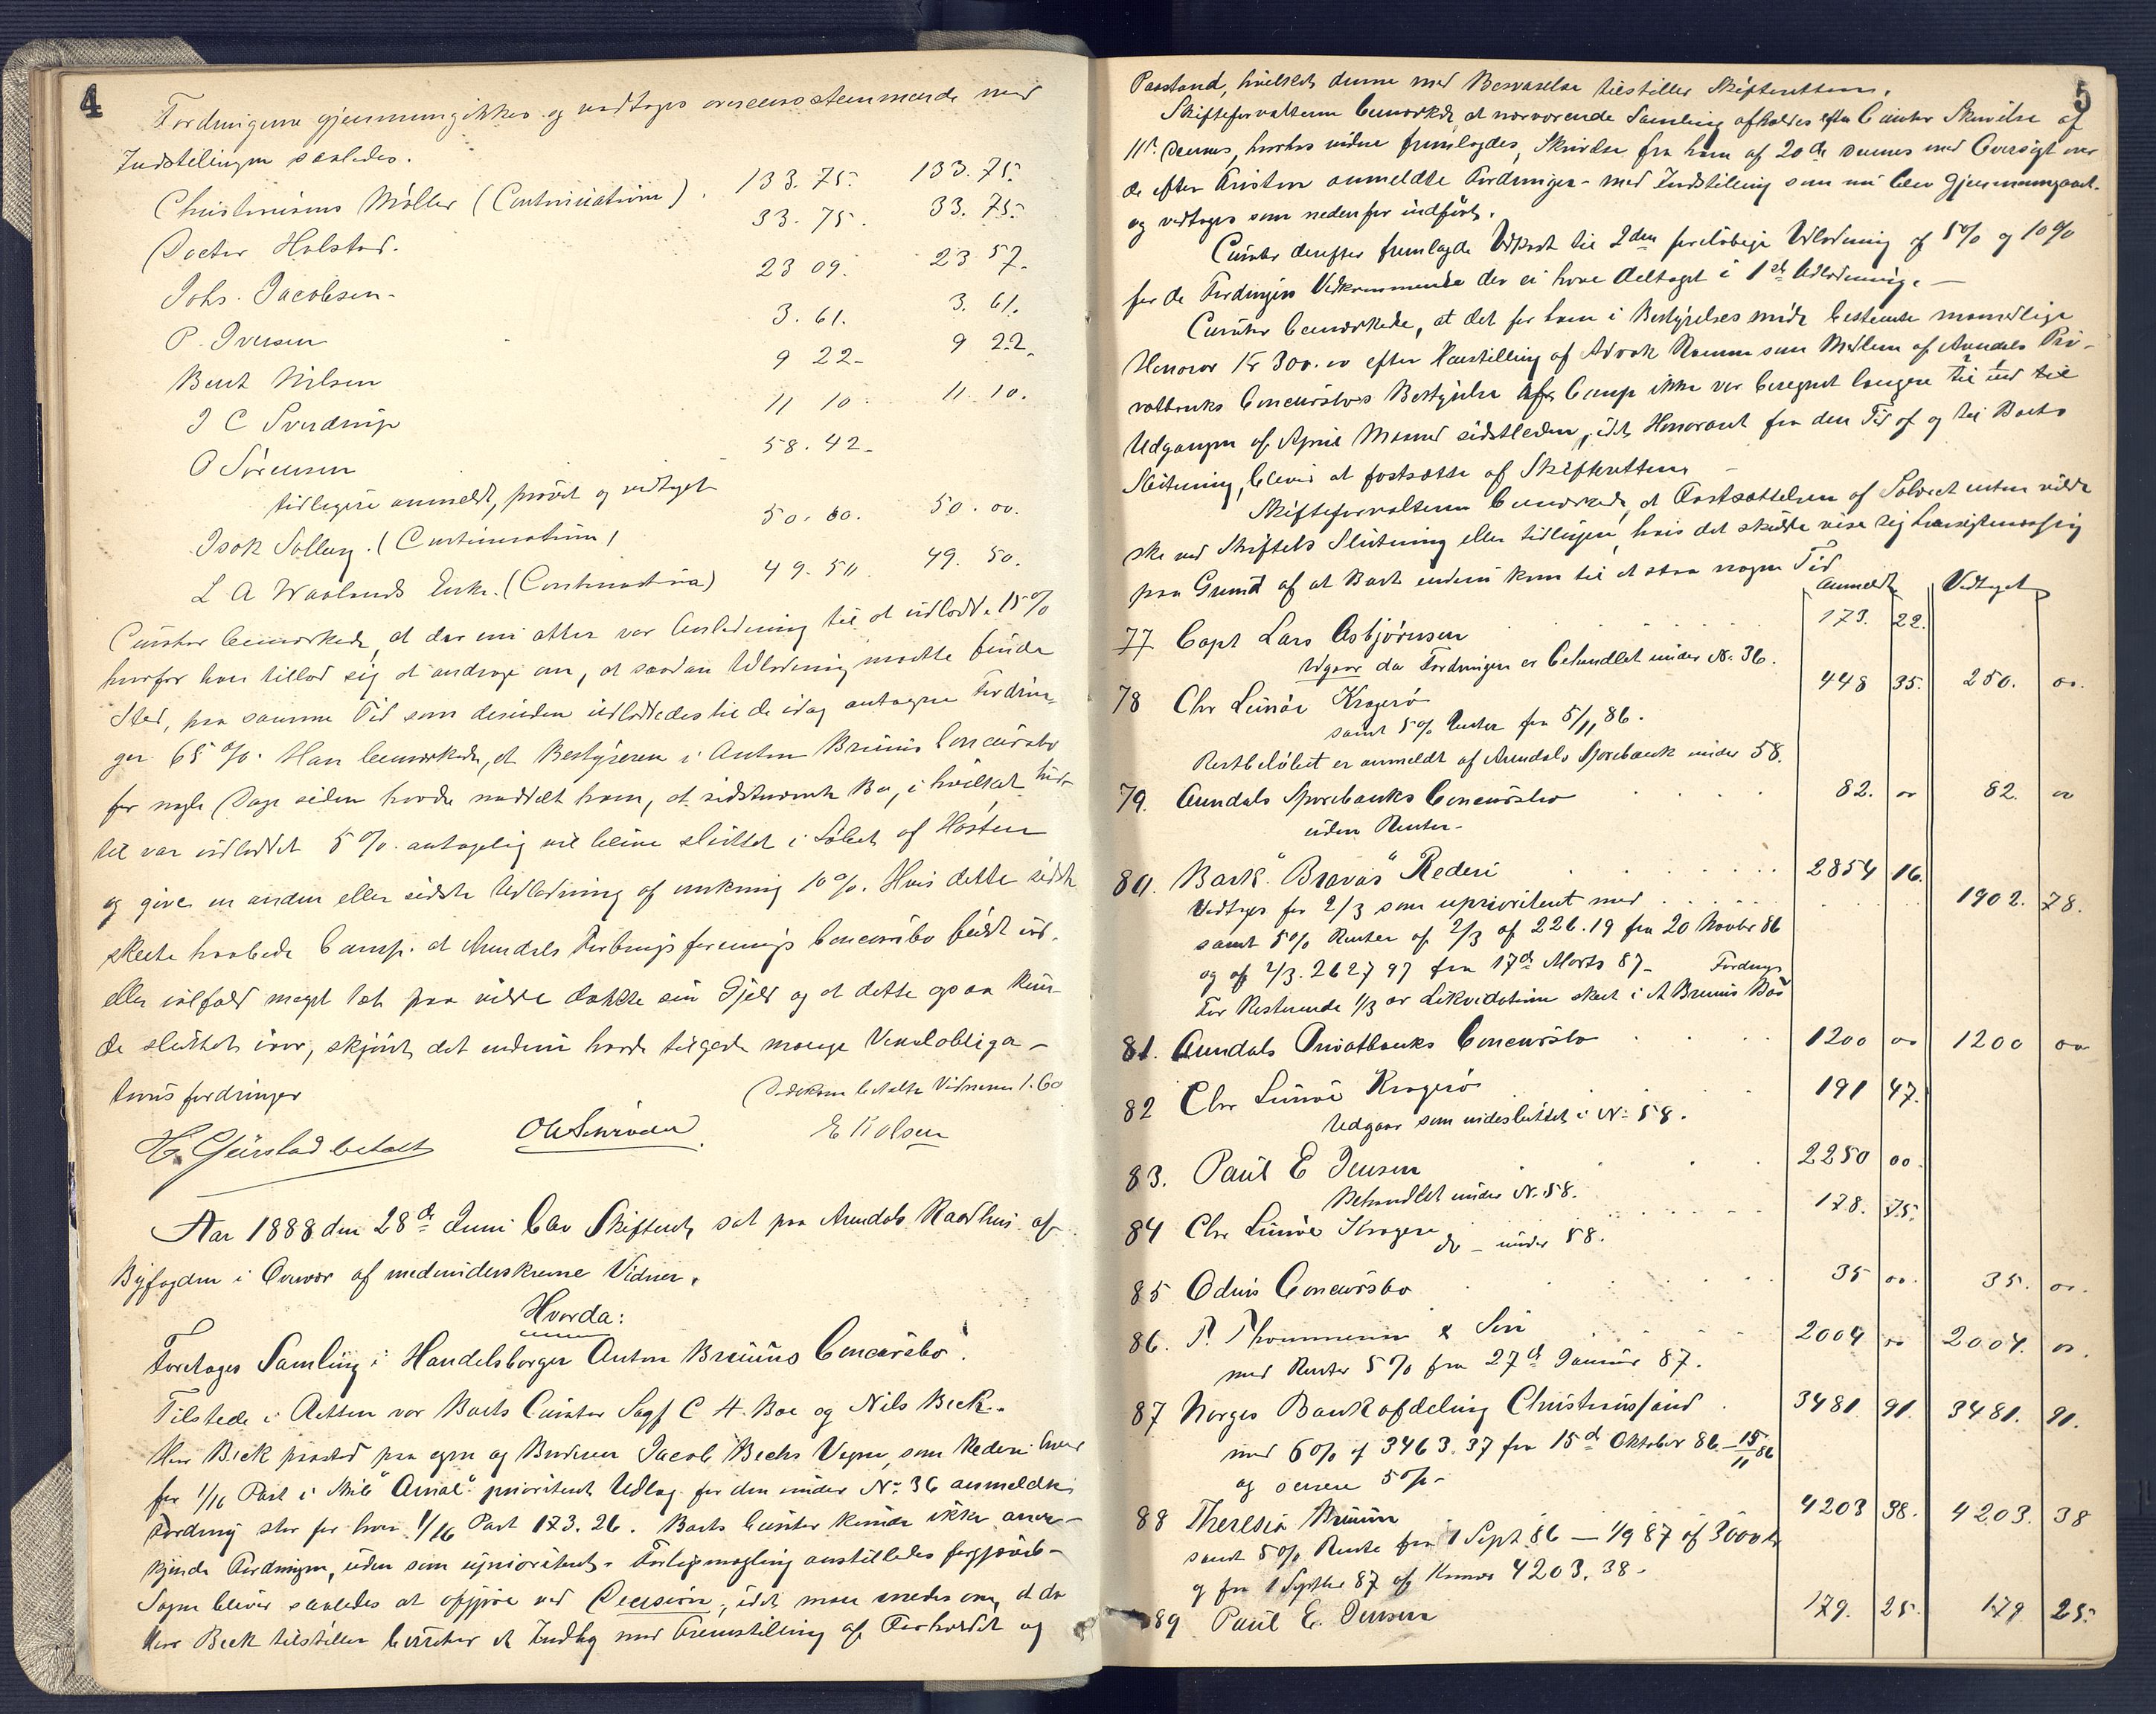 4
Fordringerne gjennemgikkes og vedtages overensstemmende med
Indstillingen saaledes.
Christensens Møller (Continuation) . 133. 75. 133. 75.
Doctor Holstad. 33. 75. 33. 75.
Johs. Jacobsen. 23 09. 23 57.
P. Iversen 3. 61. 3. 61.
Berit Nilsen 9 22 9 22.
J C Sverdrup 11 10 11. 10.
O Sørensen 58. 42
tidligere anmeldt, prøvet og vedtaget
Isak Solberg. (Continuation) 50. 00. 50. 00.
L A Waalands Enke. (Continuation) 49. 50 49. 50.
Curator bemærkede, at der nu atter var Anledning til at udlodde 15%
hvorfor han tillod sig at andrage om, at saadan Udlodning maatte finde
Sted, paa samme Tid som desuden udloddedes til de idag antagne Fordrin-
ger 65 %. Han bemærkede, at Bestyreren i Anton Bruuns Concursbo
for nogle Dage siden havde meddelt ham, at sidstnævnte Bo, i hvilket hid-
til var udloddet 5 %. antagelig vil blive sluttet i Løbet af Høsten
og give en anden eller sidste Udlodning af omkring 10 %. Hvis dette sidste
skeete haabede Comp. at Arendals Forbrugsforenings Concursbo fuldt ud,
eller ialfald meget let paa vilde dække sin Gjeld og at dette ogsaa kun-
de sluttes iaar, skjønt det endnu havde tilgode mange Vexelobliga-
tions fordringer
Dødsboen betalte Vidnerne 1. 60
H. Gjurstad betalt O A Schrøder E Kolsen
Aar 1888 den 28de Juni blev Skifteret sat paa Arendals Raadhus af
Byfogden i Overvær af medunderskrevne Vidner.
Hvorda:
Foretoges Samling i Handelsborger Anton Bruuns Concursbo.
Tilstede i Retten var Boets Curator Sagf C H. Boe og Nils Beck.
Herr Beck paastod paa egne og Broderen Jacob Becks Vegne, som Rederi hver
for 1/16 Part i Skib "Arnal" prioriteret Udlæg for den under No 36 anmeldte
Fordring stor for hver 1/16 Part 173. 26. Boets Curator kunde ikke aner-
kjende Fordringen, uden som uprioriteret. Forligsmægling anstilledes forgjæves.
Sagen bliver saaledes at afgjøre ved Decision, idet man enedes om, at da
Herr Beck tilstiller Curator et Indlæg med Fremstilling af Forholdet og
5
Paastand, hvilket denne med Besvarelse tilstiller Skifteretten.
Skifteforvalteren bemærkede, at nærværende Samling afholdes efter Curator Skrivelse af
11te dennes, hvorhos videre fremlagdes Skrivelse fra ham af 20de dennes med Oversigt over
de efter Fristen anmeldte Fordringer med Indstilling som nu blev gjennemgaaet
og vedtages som nedenfor indført.
Curator derefter fremlagde Udkast til 2den foreløbige Udlodning af 5% og 10%
for de Fordringers Vedkommende der ei have deltaget i 1ste Udlodning. —
Curator bemærkede, at det for ham i Bestyrelsesmøde bestemte maanedlige
Honorar Kr 300. 00 efter Henstilling af Advok. som Medlem af Arendals Pri-
vatbanks Concursbos Bestyrelse af Comp ikke var beregnet længere end til
Udgangen af April Maaned sidstleden, idet Honoraret fra den Tid af og til Boets
Slutning, bliver at fastsætte af Skifteretten —
Skifteforvalteren bemærkede, at Fastsættelsen af Salæret enten vilde
ske ved Skiftets Slutning eller tidligere, hvis det skulde vise sig hensigtsmæssig
paa Grund af at Boet endnu kom til at staa nogen Tid
Anmeldt Vedtaget
77 Capt Lars Asbjørnsen 173. 22.
Udgaar da Fordringen er behandlet under No 36.
78 Chr Lunøe Kragerø 448 35. 250. 00.
samt 5% Renter fra 5/11 86.
Restbeløbet er anmeldt af Arendals Sparebank under 58.
79. Arendals Sparebanks Concursbo 82. 00 82. 00
uden Renter
80. Bark "Bravas" Rederi 2854 16.
Vedtages for 2/3 som uprioriteret med 1902. 78.
samt 5% Renter af 2/3 af 226. 19 fra 20 Novbr 86
og af 2/3. 2627 97 fra 17de Marts 87 Fordrings
For Resterende 1/3 er Likvidation skeet i A Bruuns Bo
81. Arendals Privatbanks Concursbo 1200 00 1200 00
82 Chr Lunøe Kragerø 191 47.
Udgaar som indesluttet i No 58.
83. Paul E Jensen 2250 00.
Behandlet under No. 58.
84 Chr Lunøe Kragerø 178. 75.
do — under 58.
85 Odins Concursbo 35 00. 35. 00.
86. P. Thommesen & Søn 2004 00 2004. 00.
med Renter 5% fra 27de Januar 87.
87 Norges Bankafdeling Christianssand 3481 91. 3481. 91.
med 6% af 3463. 37 fra 15de Oktober 86 – 15/11 86
og senere 5%
88 Theresia Bruun 4203 38. 4203. 38
samt 5% Rente fra 1 Sept. 86 — 1/9 87 af 3000 Kr
og fra 1 Septbr 87 af Kroner 4203. 38
89 Paul E. Jensen 179. 25. 179 25.